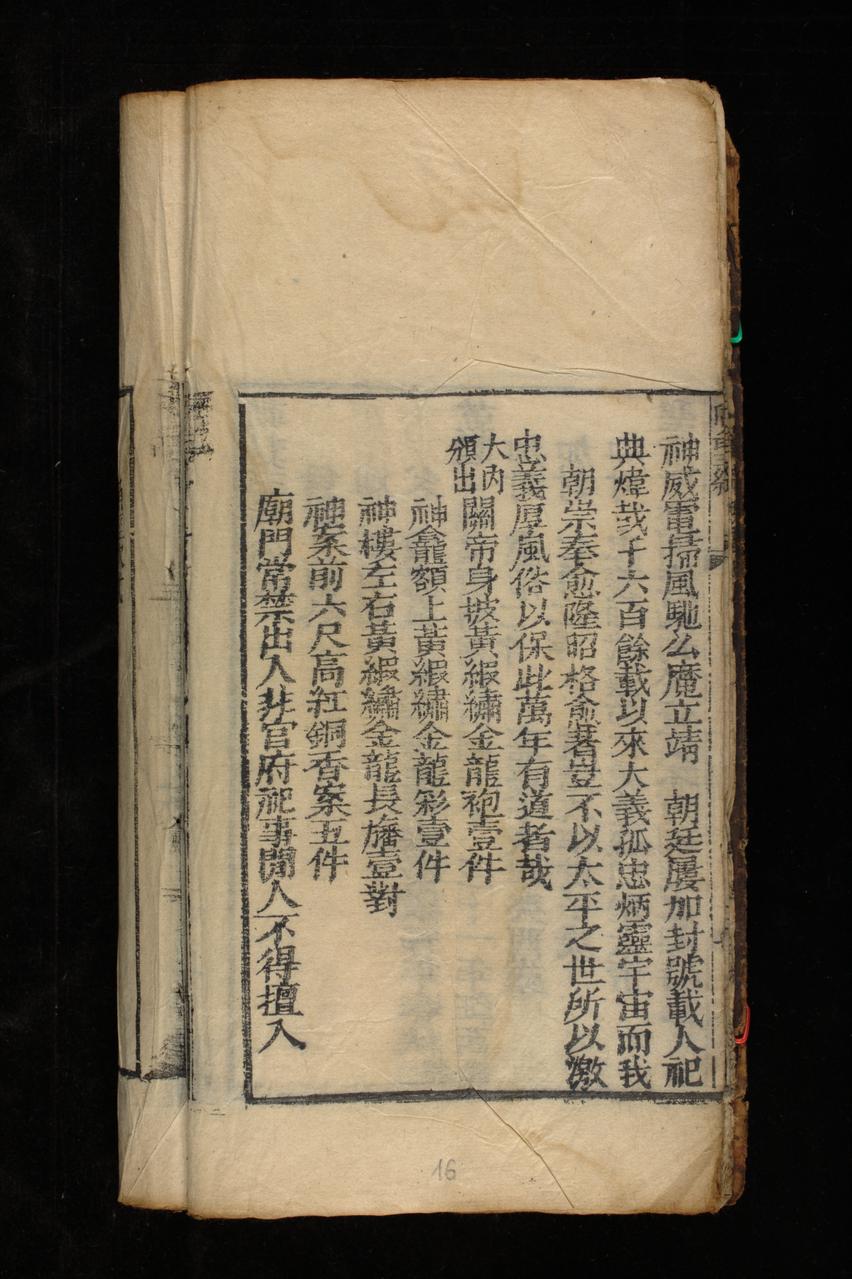 神威電掃風馳么魔立靖 朝廷屢加封號載入祀
典煒哉千六百餘載以來大義孤忠炳靈宇宙而我
朝崇奉愈隆昭格愈著豈不以太平之世所以激
忠義厚風俗以保此萬年有道者哉
大內頒出關帝身披黃緞繡金龍袍壹件
神龕額上黃緞繡金龍彩壹件
神樓左右黃緞繡金龍長旛壹對
神案前六尺高紅銅香案五件
廟門常禁出入非官府祀事閒人不得擅入
16